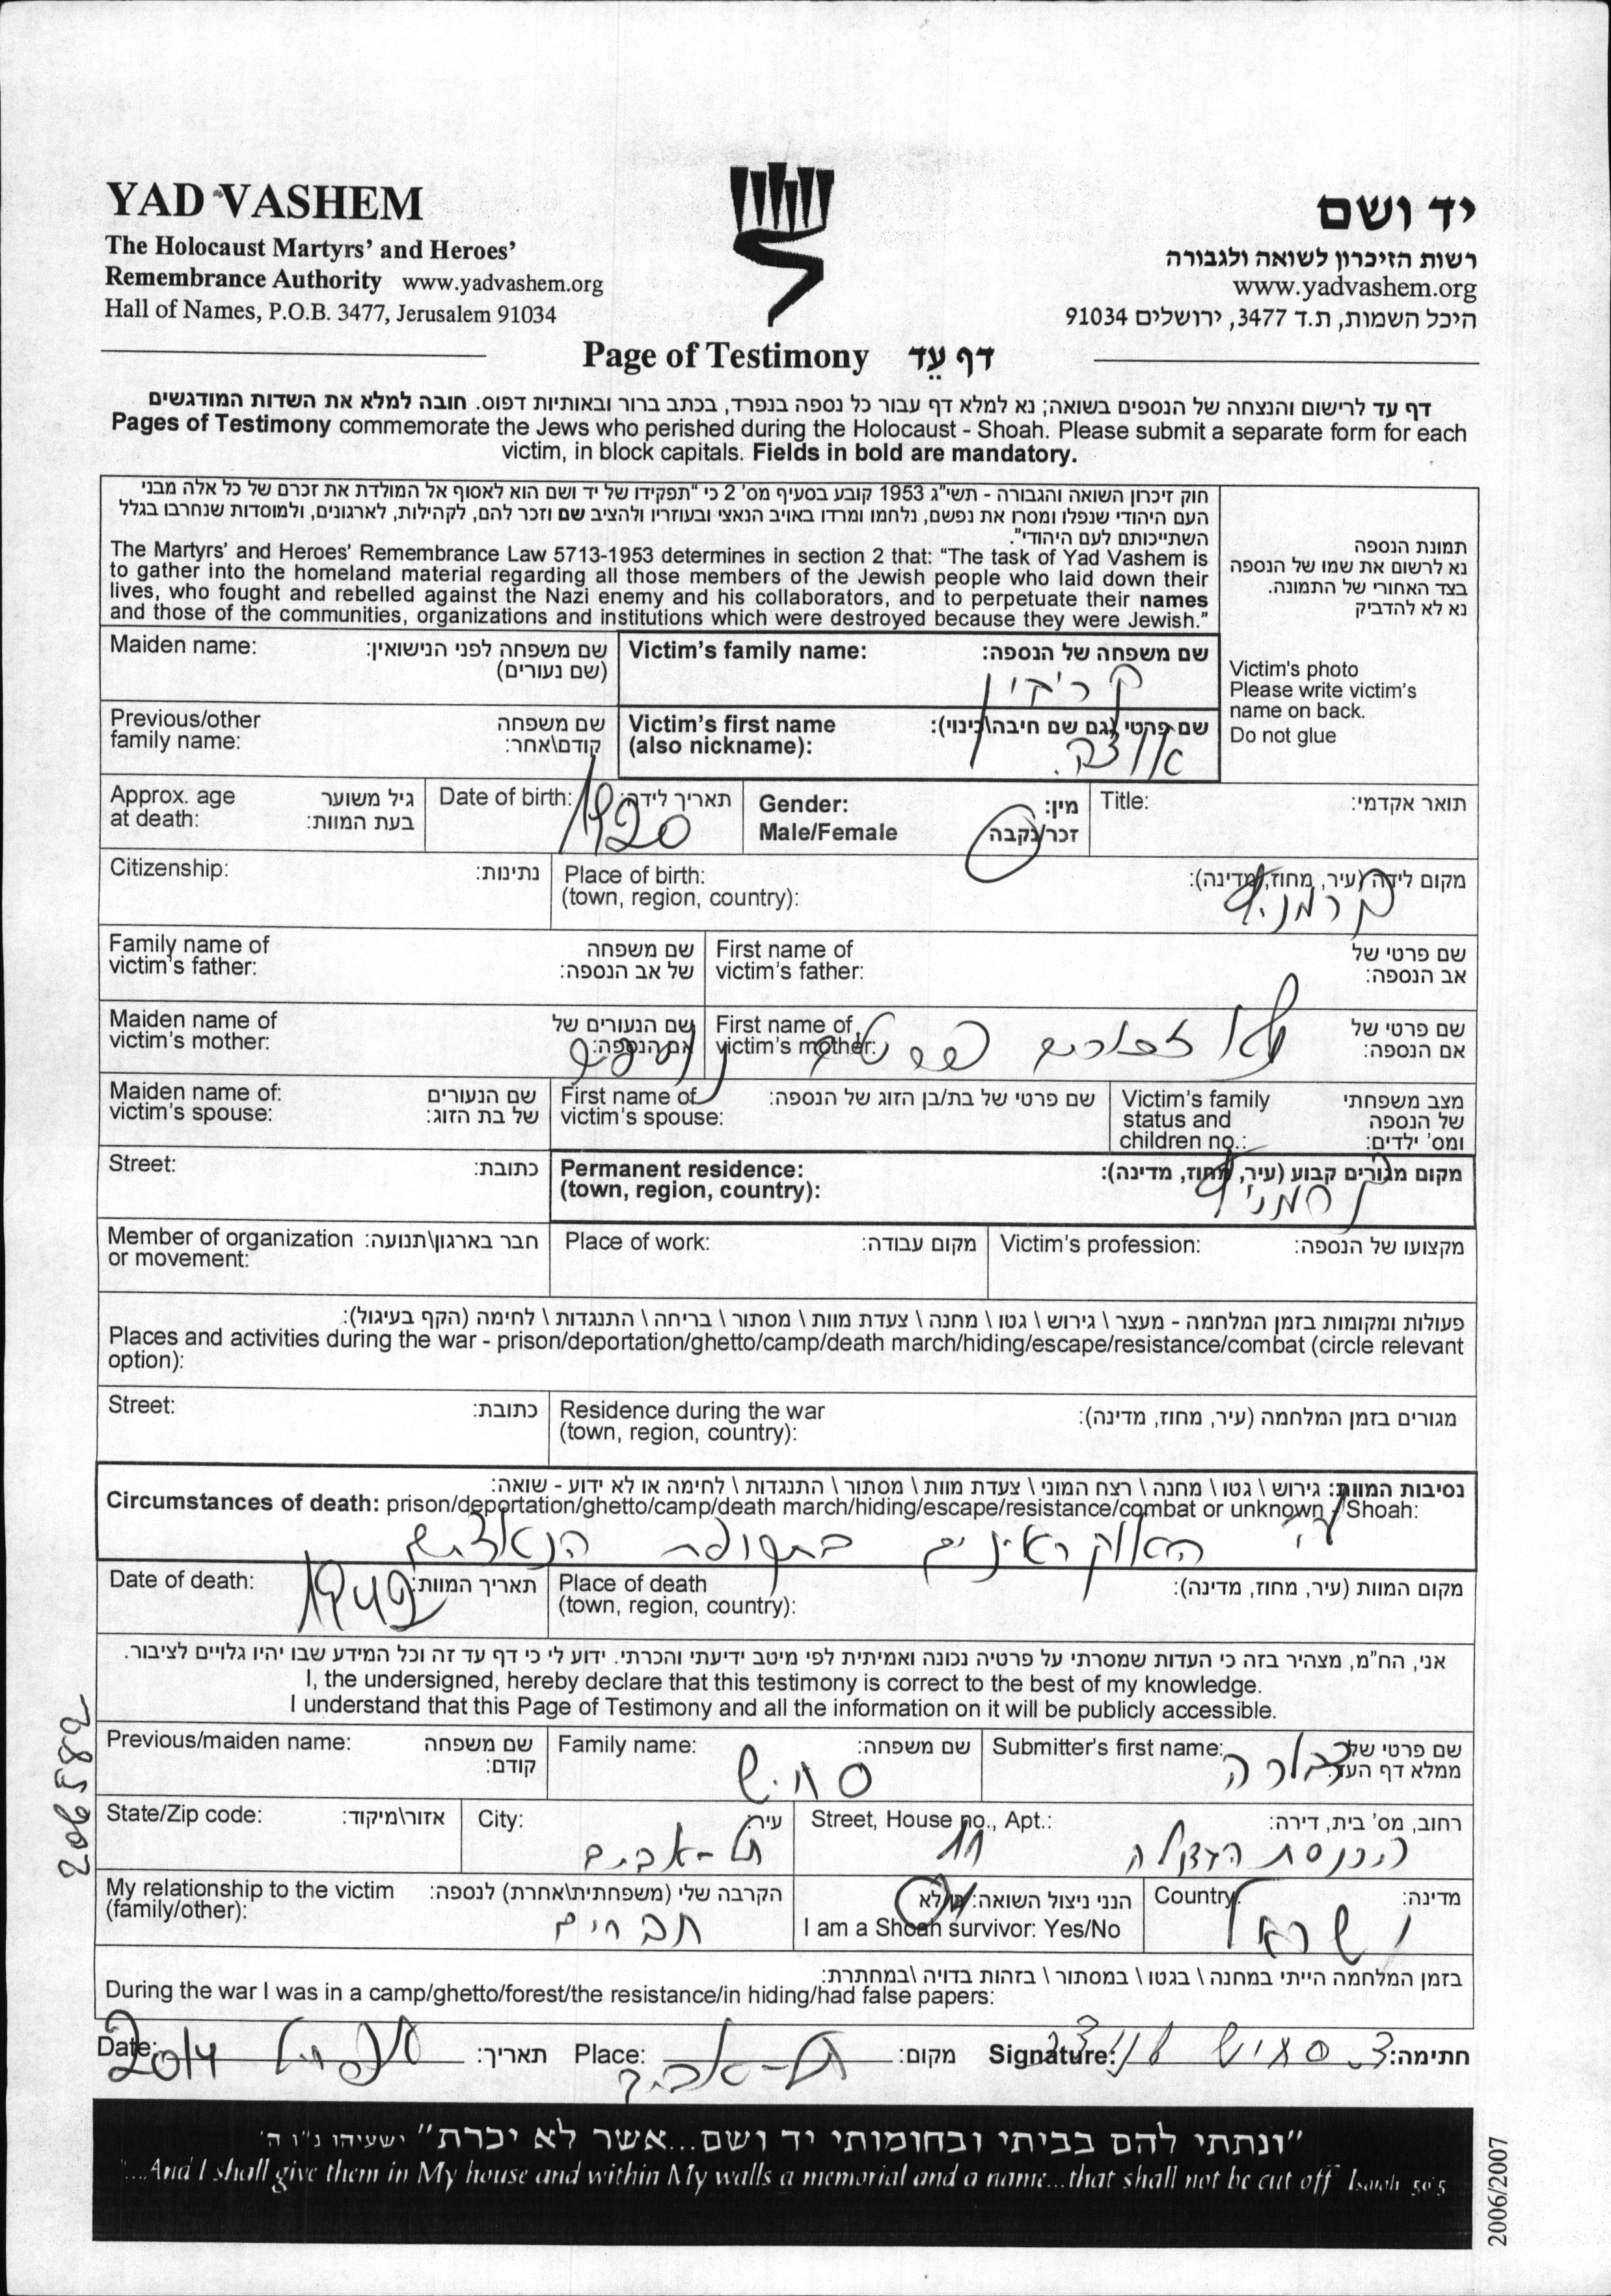 YAD VASHEM
The Holocaust Martyrs' and Heroes'
Remembrance Authority www.yadvashem.org
Hall of Names, P.O.B. 3477, Jerusalem 91034
יד ושם
רשות הזיכרון לשואה ולגבורה
www.yadvashem.org
היכל השמות, ת.ד 3477, ירושלים 91034
Page of Testimony דף עֵד
דף עד לרישום והנצחה של הנספים בשואה; נא למלא דף עבור כל נספה בנפרד, בכתב ברור ובאותיות דפוס. חובה למלא את השדות המודגשים
Pages of Testimony commemorate the Jews who perished during the Holocaust - Shoah. Please submit a separate form for each
victim, in block capitals. Fields in bold are mandatory.
חוק זיכרון השואה והגבורה - תשי"ג 1953 קובע בסעיף מס' 2 כי "תפקידו של יד ושם הוא לאסוף אל המולדת את זכרם של כל אלה מבני
העם היהודי שנפלו ומסרו את נפשם, נלחמו ומרדו באויב הנאצי ובעוזריו ולהציב שם וזכר להם, לקהילות, לארגונים, ולמוסדות שנחרבו בגלל
השתייכותם לעם היהודי".
The Martyrs' and Heroes' Remembrance Law 5713-1953 determines in section 2 that: "The task of Yad Vashem is
to gather into the homeland material regarding all those members of the Jewish people who laid down their
lives, who fought and rebelled against the Nazi enemy and his collaborators, and to perpetuate their names
and those of the communities, organizations and institutions which were destroyed because they were Jewish."
תמונת הנספה
נא לרשום את שמו של הנספה
בצד האחורי של התמונה.
נא לא להדביק
Victim's photo
Please write victim's
name on back.
Do not glue
Maiden name: שם משפחה לפני הנישואין:
(שם נעורים)
Victim's family name: שם משפחה של הנספה:
Previous/other שם משפחה
family name: קודם\אחר:
Victim's first name שם פרטי (גם שם חיבה\כינוי):
(also nickname):
Approx. age גיל משוער
at death: בעת המוות:
Date of birth: תאריך לידה:
1920
Gender: מין:
Male/Female זכר/נקבה
Title: תואר אקדמי:
Citizenship: נתינות:
Place of birth: מקום לידה (עיר, מחוז, מדינה):
(town, region, country):
Family name of שם משפחה
victim's father: של אב הנספה:
First name of שם פרטי של
victim's father: אב הנספה:
Maiden name of שם הנעורים של
victim's mother: אם הנספה:
First name of שם פרטי של
victim's mother: אם הנספה:
לא זוכרים פרטים נוספים
Maiden name of: שם הנעורים
victim's spouse: של בת הזוג:
First name of שם פרטי של בת/בן הזוג של הנספה:
victim's spouse:
Victim's family מצב משפחתי
status and של הנספה
children no.: ומס' ילדים:
Street: כתובת:
Permanent residence: מקום מגורים קבוע (עיר, מחוז, מדינה):
(town, region, country):
Member of organization חבר בארגון\תנועה:
or movement:
Place of work: מקום עבודה:
Victim's profession: מקצועו של הנספה:
פעולות ומקומות בזמן המלחמה - מעצר \ גירוש \ גטו \ מחנה \ צעדת מוות \ מסתור \ בריחה \ התנגדות \ לחימה (הקף בעיגול):
Places and activities during the war - prison/deportation/ghetto/camp/death march/hiding/escape/resistance/combat (circle relevant
option):
Street: כתובת:
Residence during the war מגורים בזמן המלחמה (עיר, מחוז, מדינה):
(town, region, country):
נסיבות המוות: גירוש \ גטו \ מחנה \ רצח המוני \ צעדת מוות \ מסתור \ התנגדות \ לחימה או לא ידוע - שואה:
Circumstances of death: prison/deportation/ghetto/camp/death march/hiding/escape/resistance/combat or unknown - Shoah:
ע"י האוקראינים בתקופת הנאצים
Date of death: תאריך המוות:
1942
Place of death מקום המוות (עיר, מחוז, מדינה):
(town, region, country):
אני, הח"מ, מצהיר בזה כי העדות שמסרתי על פרטיה נכונה ואמיתית לפי מיטב ידיעתי והכרתי. ידוע לי כי דף עד זה וכל המידע שבו יהיו גלויים לציבור.
I, the undersigned, hereby declare that this testimony is correct to the best of my knowledge.
I understand that this Page of Testimony and all the information on it will be publicly accessible.
Previous/maiden name: שם משפחה
קודם:
Family name: שם משפחה:
Submitter's first name: שם פרטי של
ממלא דף העד:
State/Zip code: אזור\מיקוד:
City: עיר:
תל-אביב
Street, House no., Apt.: רחוב, מס' בית, דירה:
11
My relationship to the victim הקרבה שלי (משפחתית\אחרת) לנספה:
(family/other):
חברים
הנני ניצול השואה: כן/לא
I am a Shoah survivor: Yes/No
Country: מדינה:
ישראל
בזמן המלחמה הייתי במחנה \ בגטו \ במסתור \ בזהות בדויה \במחתרת:
During the war I was in a camp/ghetto/forest/the resistance/in hiding/had false papers:
Date: אפריל 2014 תאריך: Place: תל-אביב מקום: Signature: חתימה:
"ונתתי להם בביתי ובחומותי יד ושם...אשר לא יכרת" ישעיהו נ"ו ה'
"...And I shall give them in My house and within My walls a memorial and a name...that shall not be cut off" Isaiah 56:5
206582
2006/2007